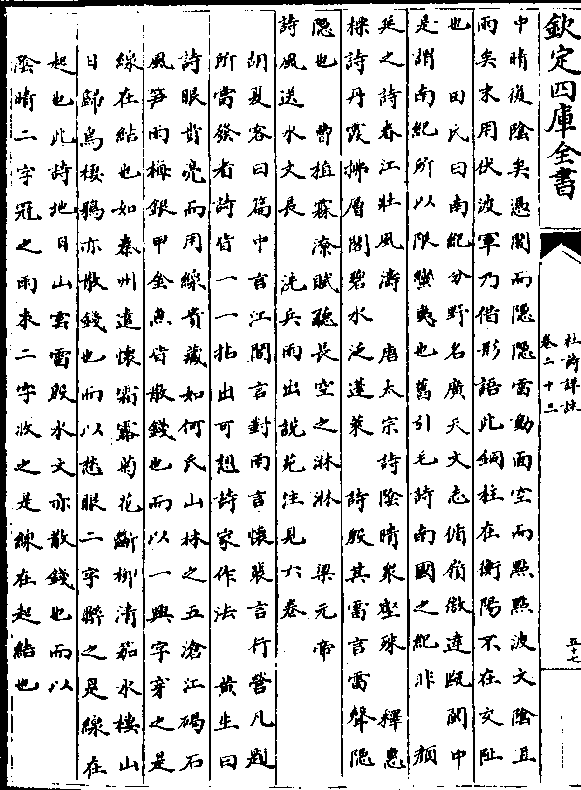 欽定四庫全書
杜詩詳註
卷二十三
五十七
中晴復陰矣憑閣而隠隠雷動面空而點點波文陰且
雨矣末用伏波軍乃借形語此銅柱在衡陽不在交趾
也　田氏曰南紀分野名廣天文志循嶺徼達甌閩中
是謂南紀所以限蠻夷也舊引毛詩南國之紀非　顔
延之詩春江壯風濤　唐太宗詩陰晴衆壑殊　釋惠
標詩丹霞拂層閣碧水泛蓬萊　詩殷其雷言雷聲隠
隠也　曹植霖潦賦聽長空之淋淋　梁元帝
詩風送水文長　洗兵雨出説苑注見六卷
胡夏客曰篇中言江閣言對雨言懐裴言行營凡題
所當發者詩皆一一拈出可想詩家作法　黄生曰
詩眼貴亮而用線貴藏如何氏山林之五滄江碣石
風笋雨梅銀甲金魚皆散錢也而以一興字穿之是
線在結也如秦州遣懐霜露菊花斷柳清笳水樓山
日歸鳥棲鴉亦散錢也而以愁眼二字聯之是線在
起也此詩地日山雲雷殷水文亦散錢也而以
陰晴二字冠之雨來二字收之是線在起結也